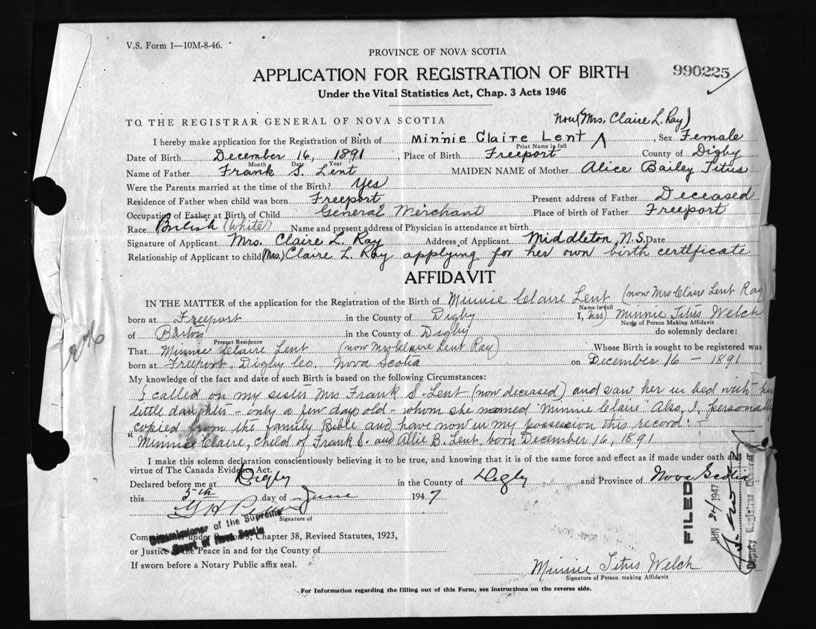 V.S. Form 1—10M-8-46.
PROVINCE OF NOVA SCOTIA
APPLICATION FOR REGISTRATION OF BIRTH
990225
Under the Vital Statistics Act, Chap. 3 Acts 1946
TO THE REGISTRAR GENERAL OF NOVA SCOTIA
now (Mrs. Claire L. Ray)
I hereby make application for the Registration of Birth of Minnie Claire Lent, Sex Female
Print Name in full
Date of Birth December 16, 1891, Place of Birth Freeport County of Digby
Month Date Year
Name of Father Frank S. Lent MAIDEN NAME of Mother Alice Bailey Titus
Were the Parents married at the time of the Birth? Yes
Residence of Father when child was born Freeport Present address of Father Deceased
Occupation of Father at Birth of Child General Merchant Place of birth of Father Freeport
Race British (White) Name and present address of Physician in attendance at birth
Signature of Applicant Mrs. Claire L. Ray Address of Applicant Middleton, N.S. Date
Relationship of Applicant to child (Mrs) Claire L. Ray applying for her own birth certificate
AFFIDAVIT
IN THE MATTER of the application for the Registration of Birth of Minnie Claire Lent (now Mrs Claire Lent Ray
Name in full
born at Freeport in the County of Digby I, (Mrs) Minnie Titus Welch
Name of Person Making Affidavit
of Barton in the County of Digby do solemnly declare:
Present Residence
That Minnie Claire Lent (now Mrs Claire Lent Ray) Whose Birth is sought to be registered was
born at Freeport Digby Co. Nova Scotia on December 16 – 1891
My knowledge of the fact and date of such Birth is based on the following Circumstances:
I called on my sister Mrs Frank S. Lent (now deceased) and saw her in bed with her
little daughter – only a few days old – whom she named "Minnie Claire" Also, I, personally
copied from the family Bible and have now in my possession this record: –
"Minnie Claire, child of Frank S. and Allie B. Lent, born December 16, 1891
I make this solemn declaration conscientiously believing it to be true, and knowing that it is of the same force and effect as if made under oath and
virtue of The Canada Evidence Act.
Declared before me at Digby in the County of Digby and Province of Nova Scotia
this 5th day of June 1947
Signature of
Commissioner of the Supreme
Court of Nova Scotia
Chapter 38, Revised Statutes, 1923,
or Justice of the Peace in and for the County of
If sworn before a Notary Public affix seal.
FILED
24 1947
Deputy Registrar General
Minnie Titus Welch
Signature of Person making Affidavit
For Information regarding the filling out of this Form, see instructions on the reverse side.